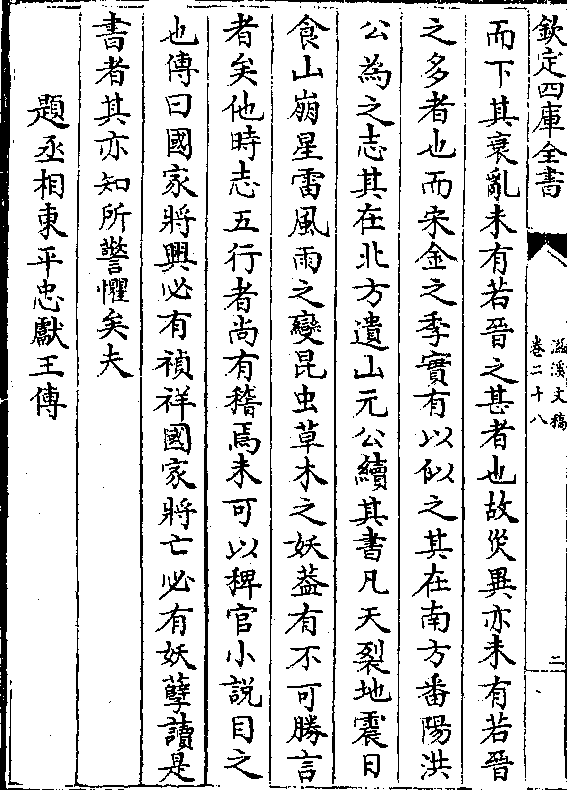 欽定四庫全書
滋溪文稿
卷二十八
二
而下其衰亂未有若晉之甚者也故災異亦未有若晉
之多者也而宋金之季實有以似之其在南方番陽洪
公為之志其在北方遺山元公續其書凡天裂地震日
食山崩星雷風雨之變昆虫草木之妖葢有不可勝言
者矣他時志五行者尚有稽焉未可以稗官小說目之
也傳曰國家將興必有禎祥國家將亡必有妖孽讀是
書者其亦知所警懼矣夫
題丞相東平忠獻王傳